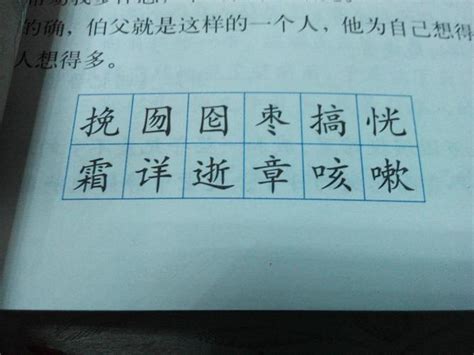 的确，伯父就是这样的一个人，他为自己想得
人想得多。
挽囫囵枣搞恍
霜详逝章咳嗽